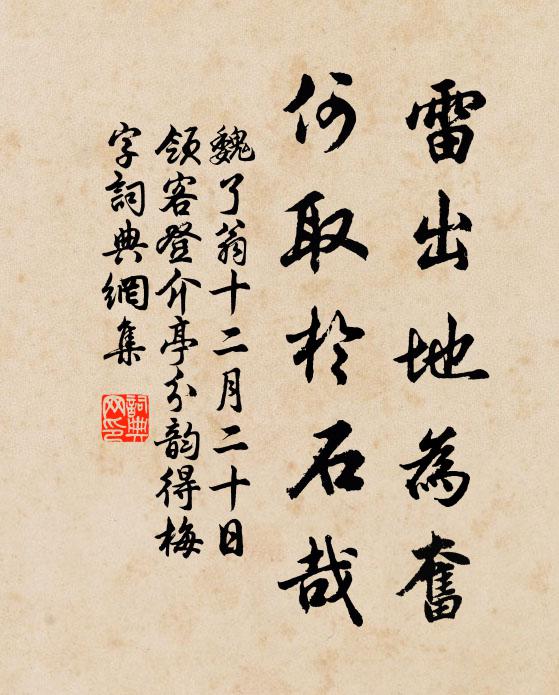 雷出地為奮
何取於石哉
魏了翁十二月二十日
領客登介亭分韵得梅
字詞典網集
詞典
网印